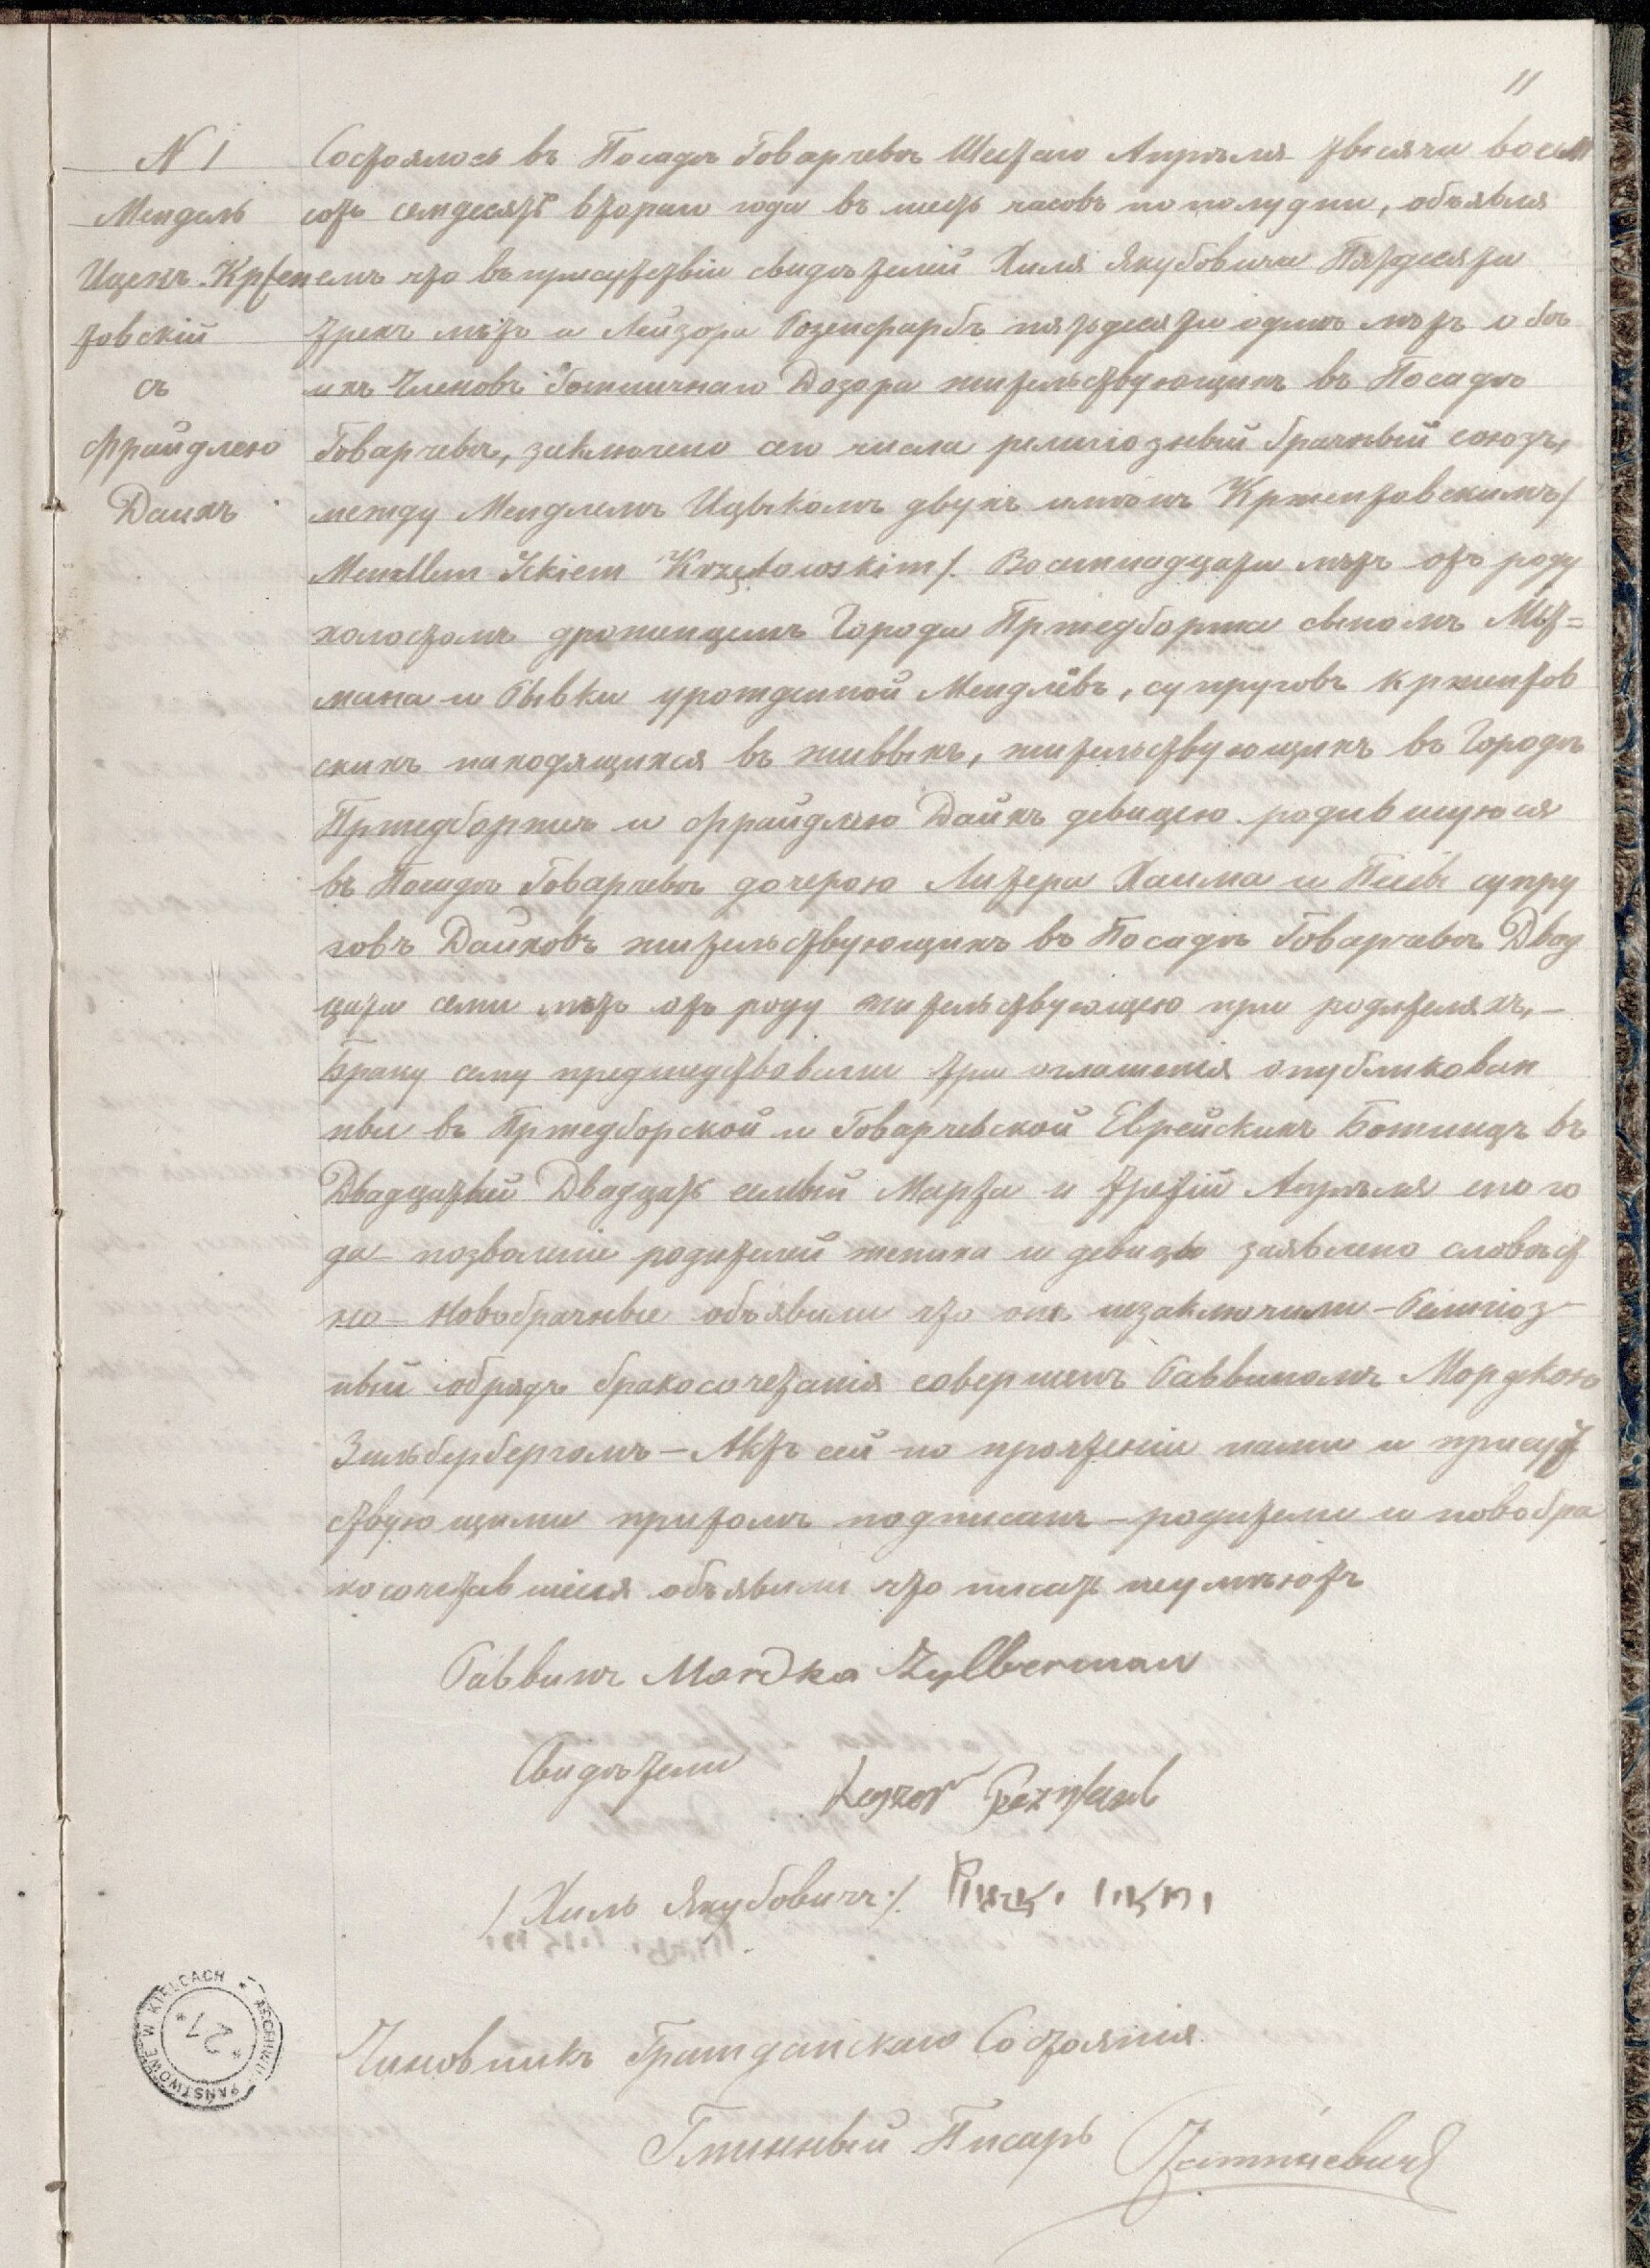 11
N 1
Мендель
Ицекъ Кржен
товскій
съ
Фрайдлею
Дайхъ
Состоялось въ Посадѣ Говарчевѣ Шестаго Апрѣля тысяча восем
сотъ семдесятъ втораго года въ шесть часовъ по полудни, объявля
емъ что въ присутствіи свидѣтелей Хиля Якубовича Пятдесяти
трехъ лѣтъ и Лейзора Розенфарбъ пятьдесяти одинъ лѣтъ обо
ихъ Членовъ Божничнаго Дозора жительствующихъ въ Посадѣ
Говарчевѣ, заключено сего числа религіозный брачный союзъ,
между Мендлемъ Ицыкомъ двухъ имянъ Кржентовскимъ/
Mendlem Ickiem Krzętowskim/. Восемнадцати лѣтъ отъ роду
холостомъ уроженцемъ Города Пржедборжа сыномъ
мана и Рывки урожденной Мендлёвъ, супруговъ Кржентов
скихъ находящихся въ живыхъ, жительствующихъ въ Городѣ
Пржедборжѣ и Фрайдлею Дайхъ девицею родившуюся
въ Посадѣ Говарчевѣ дочерою Хаима и супру
говъ Дайховъ жительствующихъ въ Посадѣ Говарчевѣ Двад
цати семи лѣтъ отъ роду жительствующею при родителяхъ, —
Браку сему предшедствовали три оглашенія опубликован
ныи въ Пржедборской и Говарчевской Еврейскихъ Божницъ въ
Двадцатый Двадцать седмый Марта и третій Апрѣля сего го
да — позволеніе родителей жениха и девицы заявлено словѣст
но — Новобрачные объявили что онѣ незаключили — Религіоз-
ный обрядъ бракосочетанія совершенъ Раввиномъ Мордкою
Зильбербергомъ — Актъ сей по прочтеніи нами и присут
ствующими притомъ подписанъ — родители и новобра
косочетавшіеся объявили что писать неумѣютъ
Раввинъ Mordka Zylberman
Свидѣтели
/Хиль Якубовичъ/.
Чиновникъ Гражданскаго Состоянія
Гминный Писарь
ARCHIWUM PAŃSTWOWE W KIELCACH
* 27 *